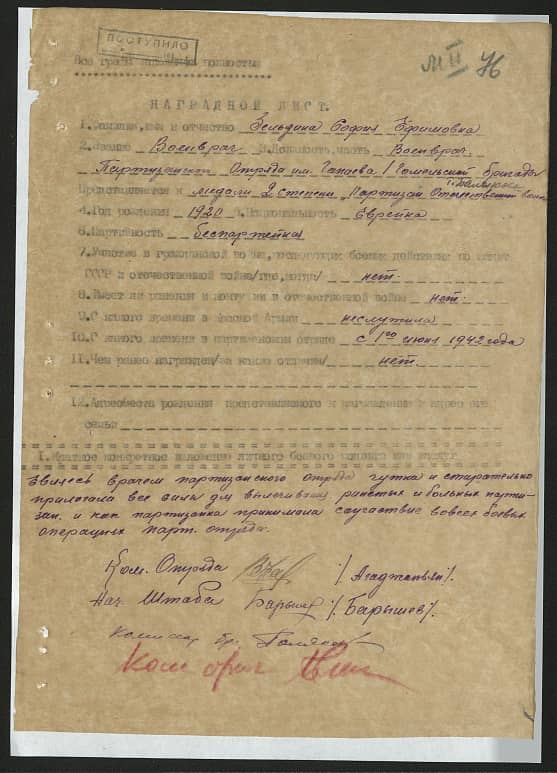 ПОСТУПИЛО
М II 76
Все графы полностью
НАГРАДНОЙ ЛИСТ.
1. Фамилия, имя и отчество Гельдина София Ефимовна
2. Звание Военврач 3. Должность, часть Военврач
Партизанского Отряда им. Чапаева 1 Гомельской бригады
Представляется к медали 2 степени "Партизан Отечественной войны"
4. Год рождения 1920 5. Национальность Еврейка
6. Партийность беспартейная
7. Участие в гражданской войне, последующих боевых действиях по защите
СССР и отечественной войне /где, когда/ нет.
8. Имеет ли ранения и контузии в отечественной войне нет.
9. С какого времени в Красной Армии неслужила
10. С какого времени в партизанском отряде с 1го июня 1942 года
11. Чем ранее награжден /за какие отличия/ нет.
12. Адрес места рождения представляемого к награждению и адрес его
семьи
I. Краткое конкретное изложение личного боевого подвига или заслуг
Являясь врачем партизанского отряда чутка и старательно
прилогала все силы для вылечивания ранетых и больных парти-
зан. и как партизанка принимала соучаствие вовсех боевых
операциях парт. отряда.
Ком. Отряда /Агаджаньян/.
Нач. Штаба Барышев /Барышев/.
Комиссар бр.
Ком бриг